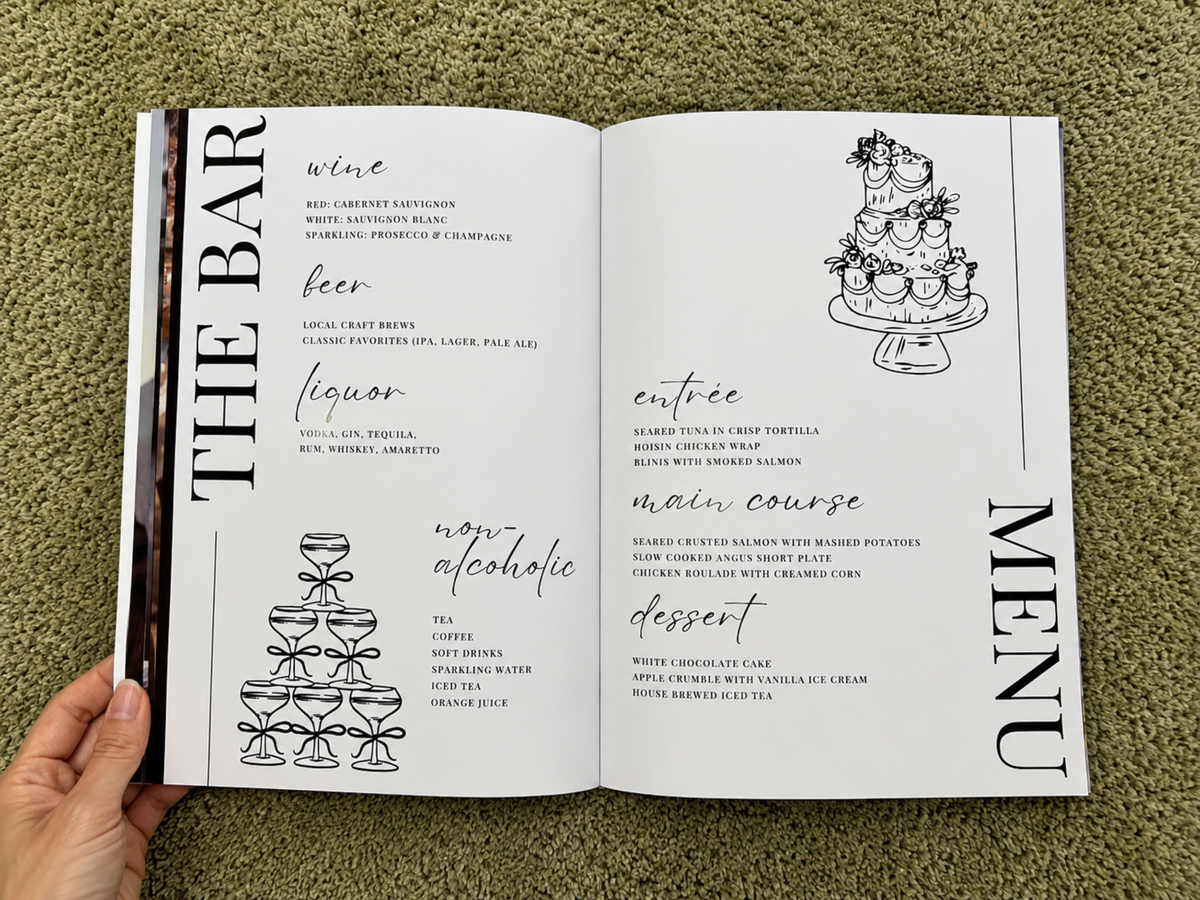 THE BAR
wine
RED: CABERNET SAUVIGNON
WHITE: SAUVIGNON BLANC
SPARKLING: PROSECCO & CHAMPAGNE
beer
LOCAL CRAFT BREWS
CLASSIC FAVORITES (IPA, LAGER, PALE ALE)
liquor
VODKA, GIN, TEQUILA,
RUM, WHISKEY, AMARETTO
non-
alcoholic
TEA
COFFEE
SOFT DRINKS
SPARKLING WATER
ICED TEA
ORANGE JUICE
entrée
SEARED TUNA IN CRISP TORTILLA
HOISIN CHICKEN WRAP
BLINIS WITH SMOKED SALMON
main course
SEARED CRUSTED SALMON WITH MASHED POTATOES
SLOW COOKED ANGUS SHORT PLATE
CHICKEN ROULADE WITH CREAMED CORN
dessert
WHITE CHOCOLATE CAKE
APPLE CRUMBLE WITH VANILLA ICE CREAM
HOUSE BREWED ICED TEA
MENU